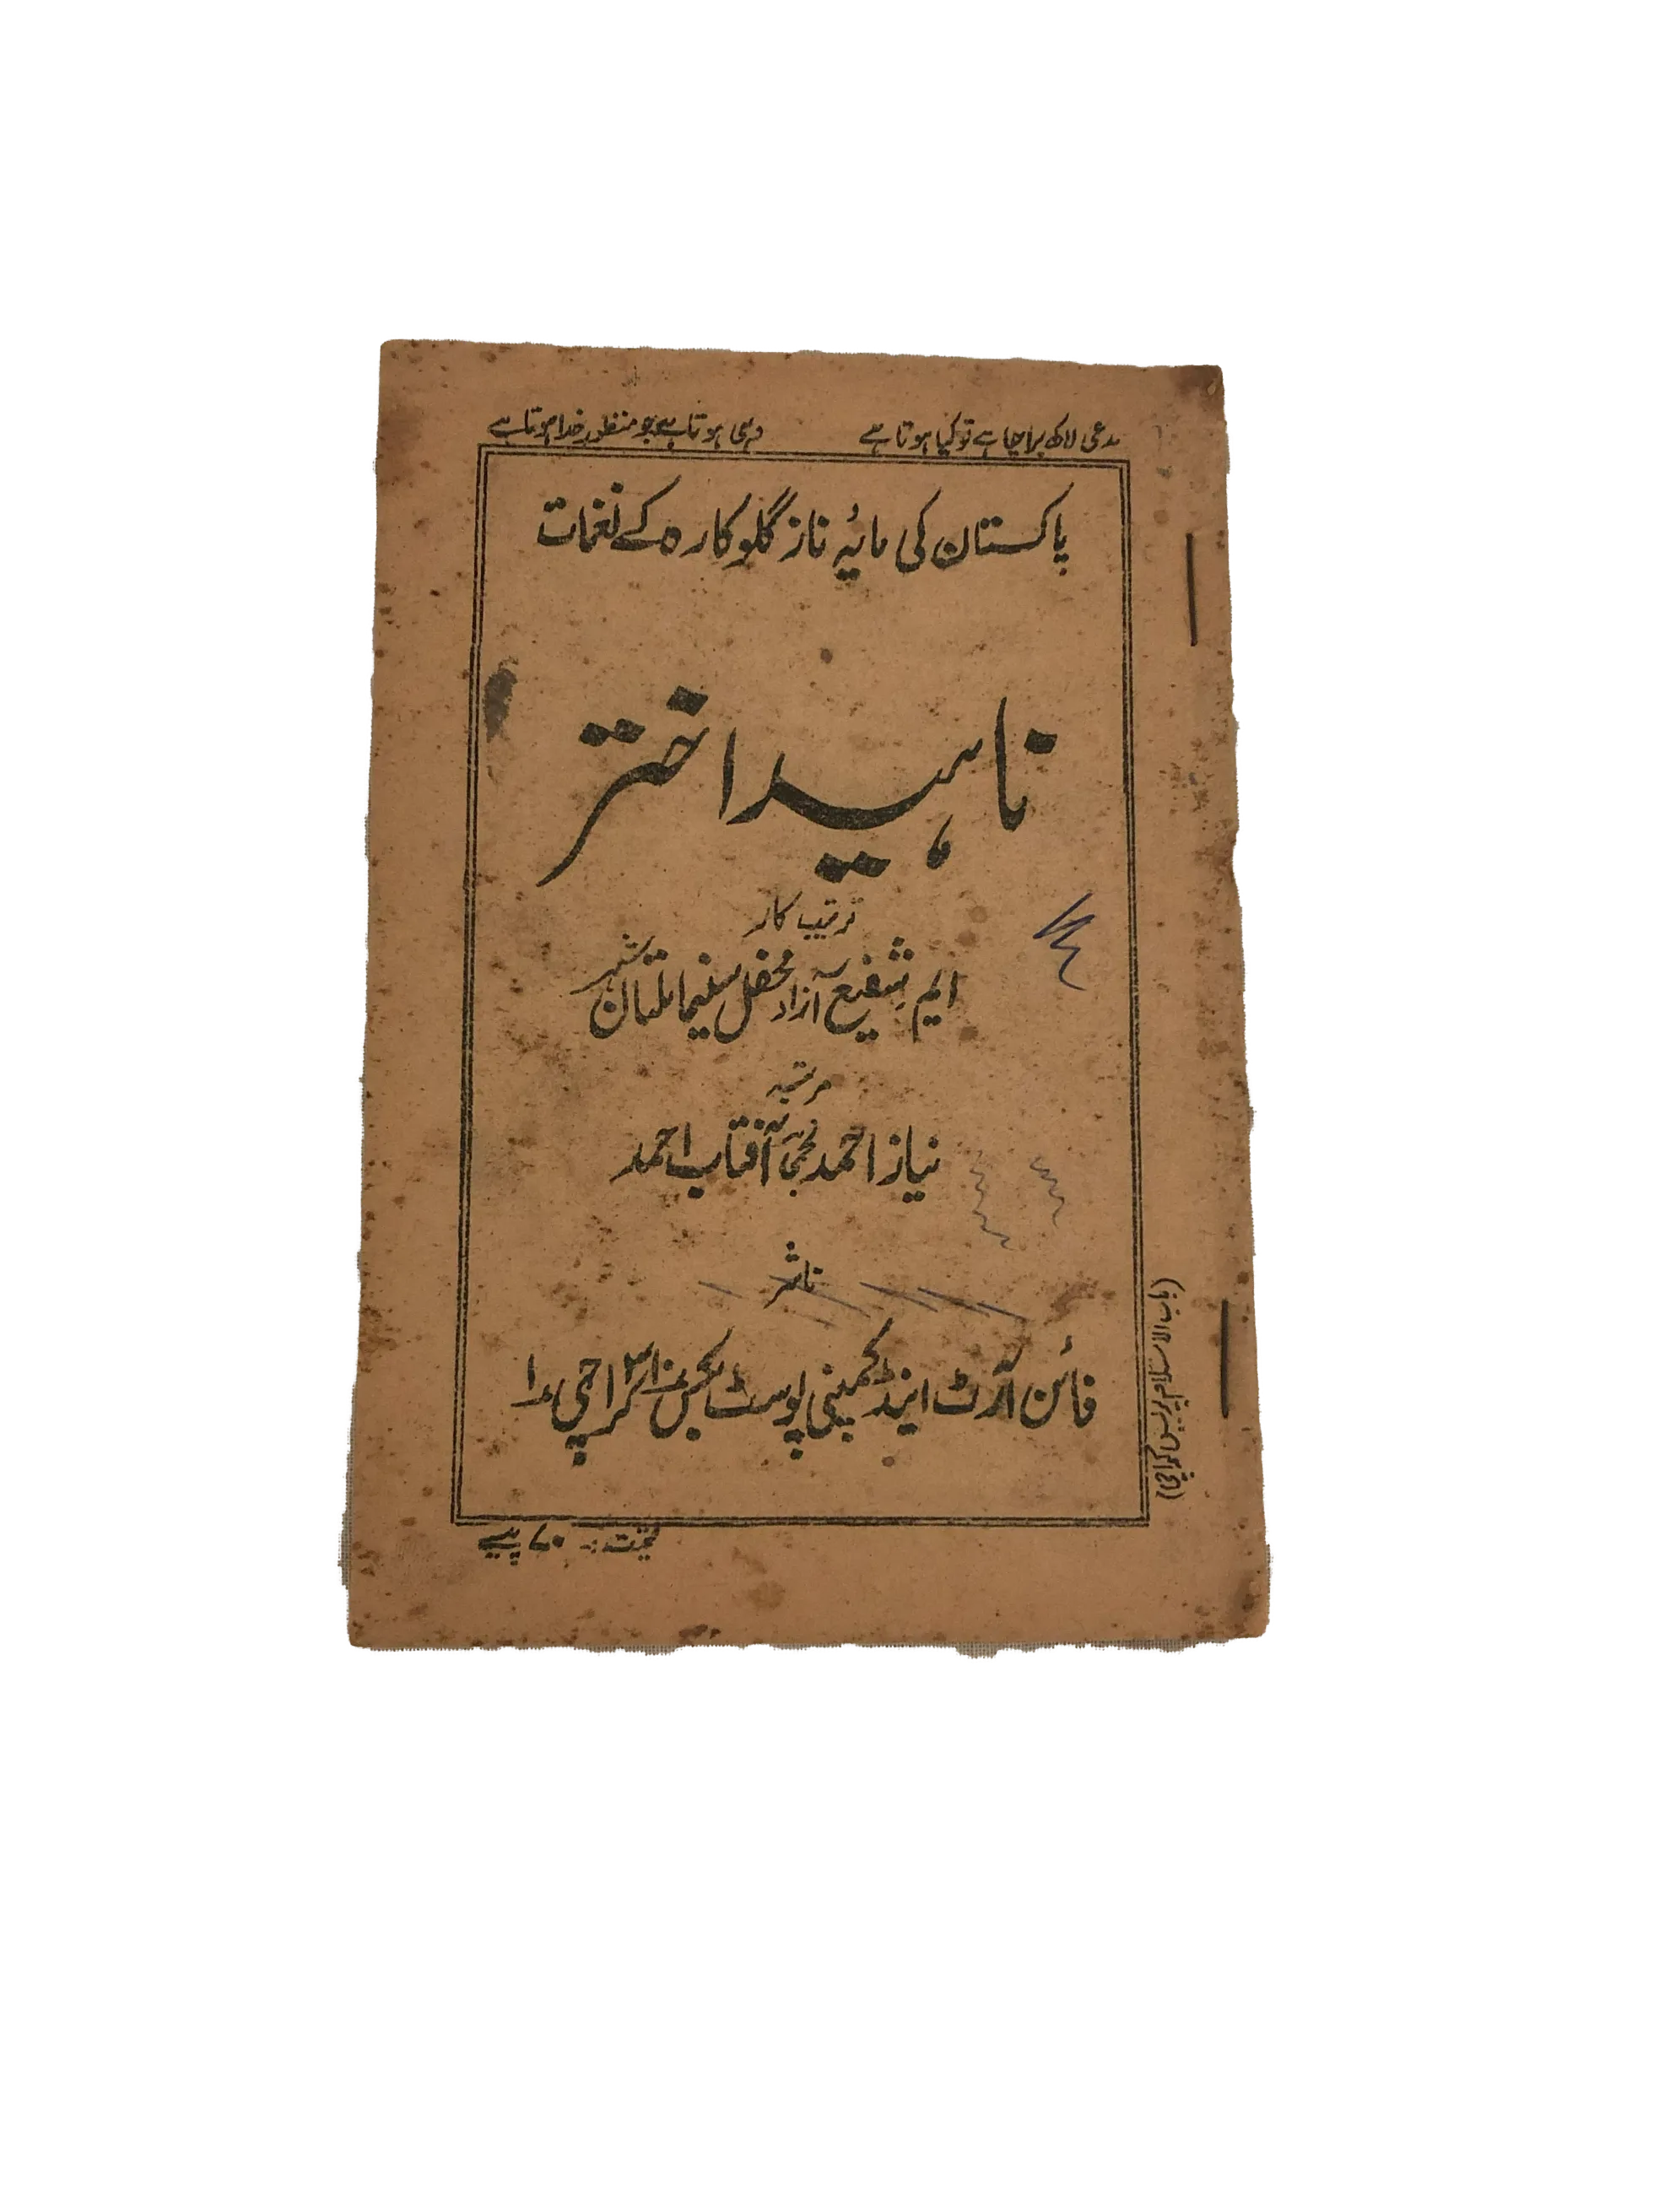 مدعی لاکھ برا چاہے تو کیا ہوتا ہے وہی ہوتا ہے جو منظورِ خدا ہوتا ہے
پاکستان کی مائیہ ناز گلوکارہ کے نغمات
ناہید اختر
ترتیب کار
ایم شفیع آزاد محفل سنیما ملتان شہر
مرتبہ
نیاز احمد آفتاب احمد
ناشر
فائن آرٹ اینڈ کمپنی پوسٹ بکس نمبر کراچی ۱
قیمت :- ۷۰ پیسے
پریس کراچی)